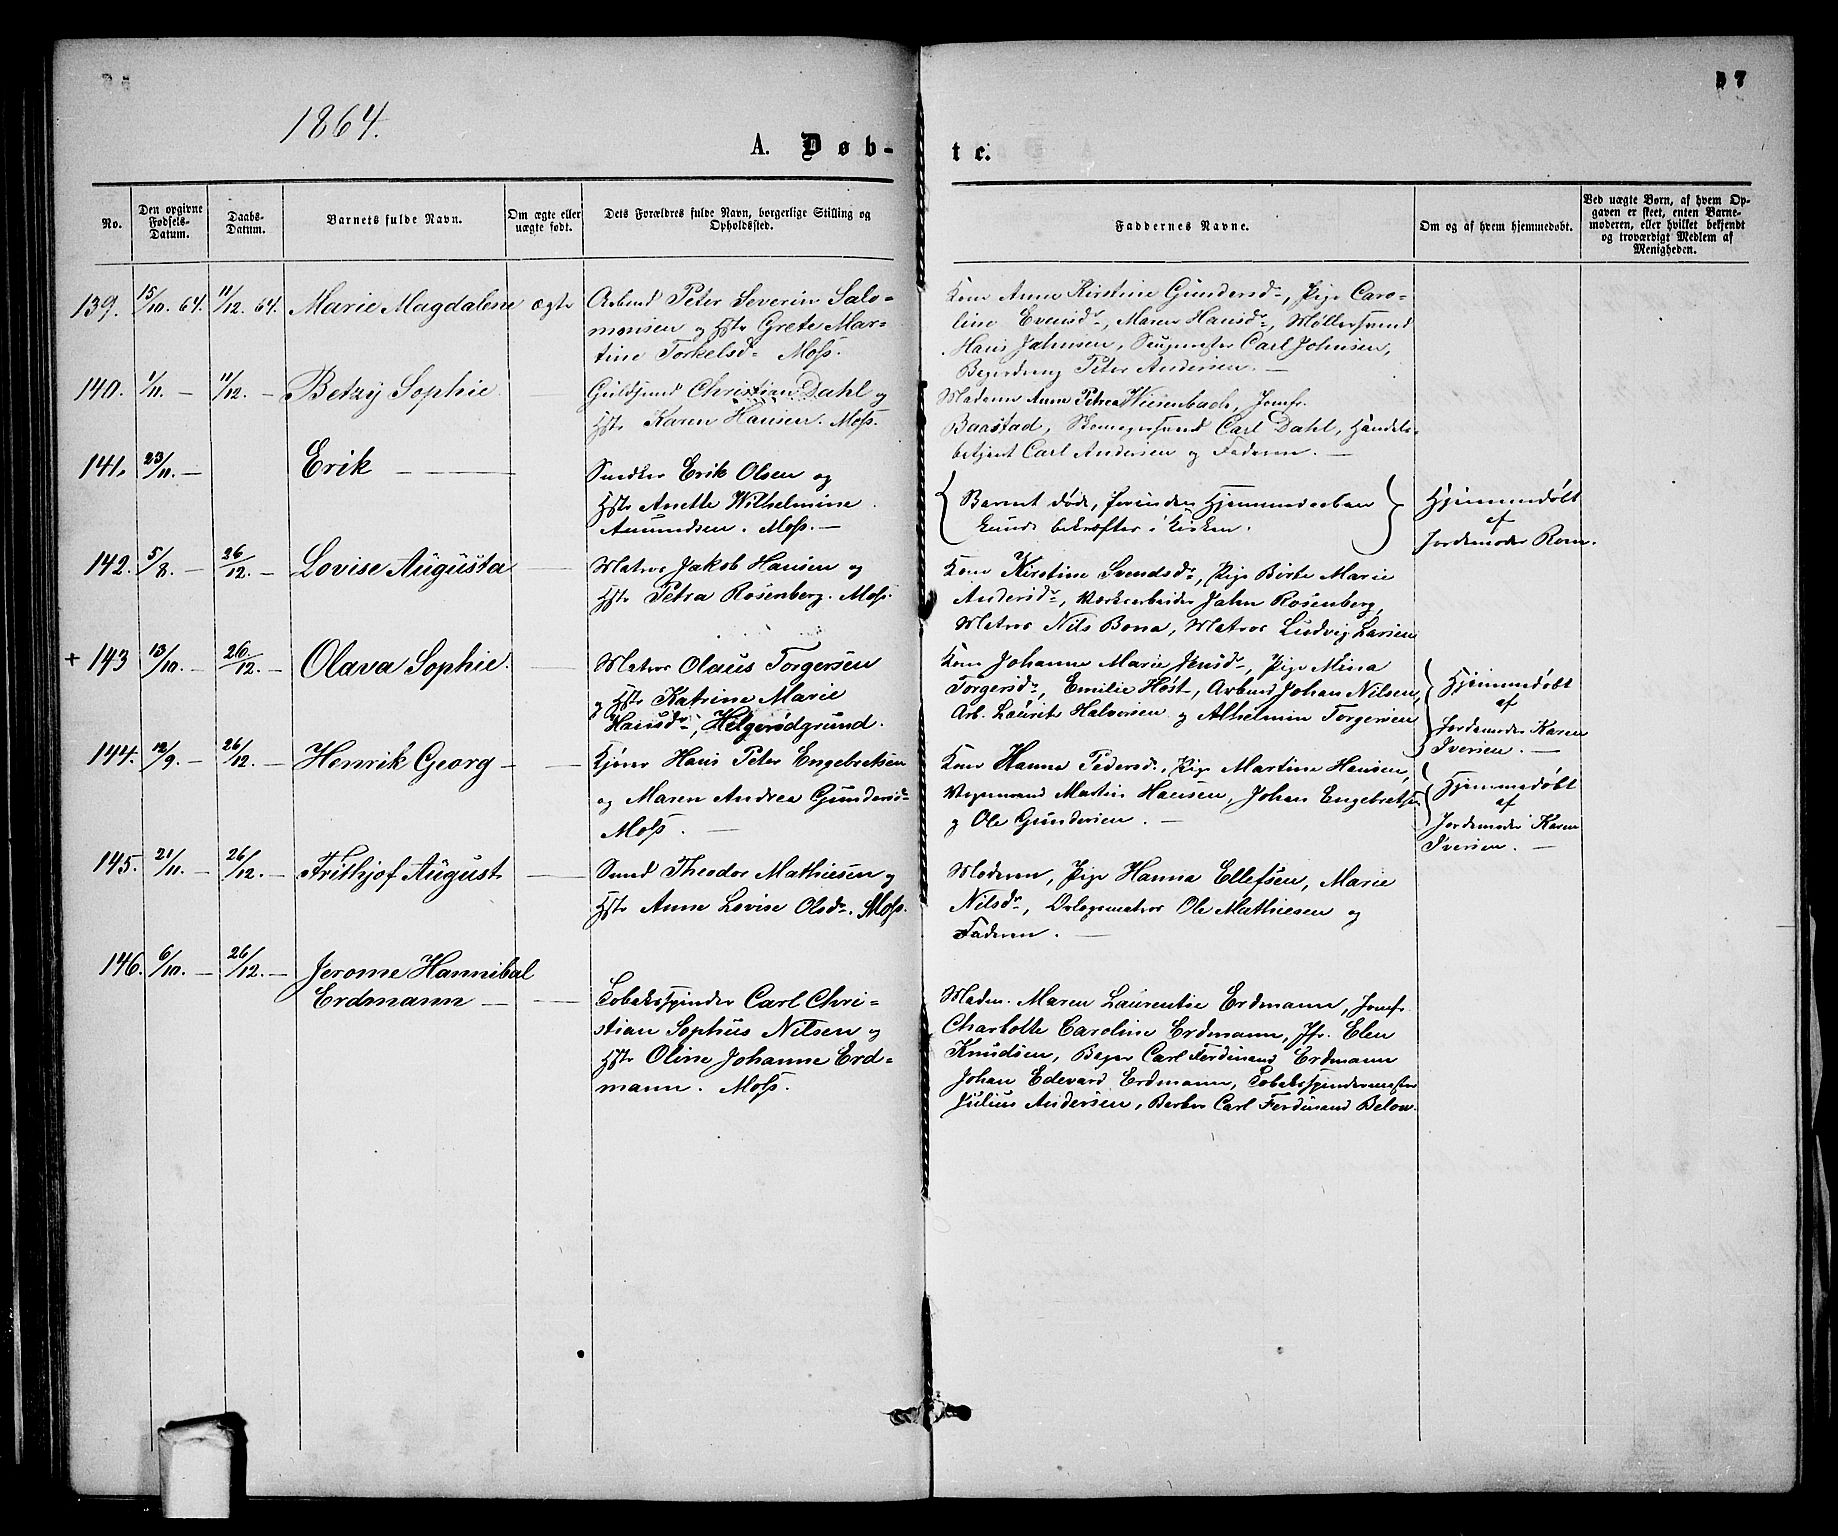 37
1864.
A. Døb-
te.
No.
Den opgivne Fødsels-Datum.
Daabs-Datum.
Barnets fulde Navn.
Om ægte eller uægte født.
Dets Forældres fulde Navn, borgerlige Stilling og Opholdssted.
Faddernes Navne.
Om og af hvem hjemmedøbt.
Ved uægte Børn, af hvem Op-
gaven er skeet, enten Barne-
moderen, eller hvilket bekjendt
og troværdigt Medlem af
Menigheden.
139. 15/10. 64. 11/12. 64. Marie Magdalene ægte
Arbmd Peter Severin Salo-
monsen og Hstr Grete Mar-
tine Torkelsdr Moss.
Kone Anne Kirstine Gundersdr, Pige Caro-
line Evensdr, Maren Hansdr, Møllersvend
Hans Jahnsen, Carl Johnsen,
Peter Andersen. —
140. 1/11. — 11/12. — Betzy Sophie. —
Guldsmd Christian Dahl og
Hstr Karen Hansen. Moss.
Madame Anne Petrea Wiesenbach, Jomfr.
Baastad, Carl Dahl, Handels-
betjent Carl Andersen og Faderen. —
141. 23/11. — Erik — —
Snedker Erik Olsen og
Hstr Anette Wilhelmine
Amundsen. Moss. —
Barnet døde, førend Hjemmedaaben
kunde bekræftes i Kirken.
Hjemmedøbt
af
Jordemoder Rom.
142. 5/8. — 26/12. — Lovise Augusta —
Matros Jakob Hansen og
Hstr Petra Rosenberg. Moss.
Kone Kirstine Svendsdr, Pige Birte Marie
Andersdr, Værksarbeider Jahn Rosenberg,
Matros Nils Bona, Matros Ludvig Larsen
+ 143 13/10. — 26/12. — Olava Sophie. —
Matros Olaus Torgersen
og Hstr Katrine Marie
Hansdr, Helgerødgrund.
Kone Johanne Marie Jensdr, Pige Mina
Torgersdr, Emilie Høst, Arbmd Johan Nilsen,
Arb. Laurits Halvorsen og Alhelmin Torgersen
Hjemmedøbt
af
Jordemoder Karen
Iversen. —
144. 12/9. — 26/12. — Henrik Georg — —
Kjører Hans Peter Engebretsen
og Maren Andrea Gundersdr
Moss. —
Kone Hanna Pedersdr, Pige Martine Hansen,
Vognmand Martin Hansen, Johan Engebretsen
og Ole Gundersen. —
Hjemmedøbt
af
Jordemoder Karen
Iversen. —
145. 21/11. — 26/12. — Frithjof August —
Smed Theodor Mathiesen og
Hstr Anne Lovise Olsdr. Moss.
Moderen, Pige Hanna Ellefsen, Marie
Nilsdr, Orlogsmatros Ole Mathiesen og
Faderen. —
146. 6/10. — 26/12. — Jerome Hannibal
Erdmann — —
Tobaksspinder Carl Chri-
stian Sophus Nilsen og
Hstr Oline Johanne Erd-
mann. Moss.
Madm. Maren Laurentie Erdmann, Jomfr.
Charlotte Caroline Erdmann, Jfr. Elen
Knudsen, Bager Carl Ferdinand Erdmann
Johan Edevard Erdmann, Tobaksspindermester
Julius Andersen, Barber Carl Ferdinand Below.